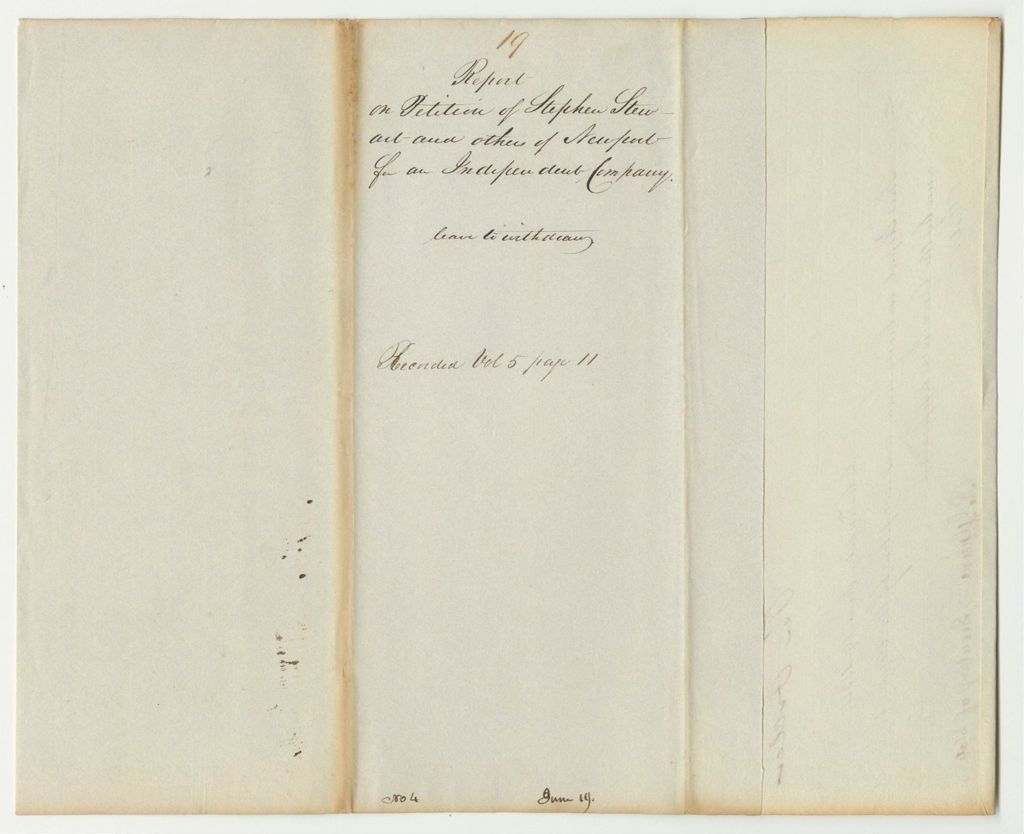 19
Report
on Petition of Stephen Stew-
art and others of Newport
for an Independent Company.
leave to withdraw
Recorded Vol 5 page 11
No 4 June 19.